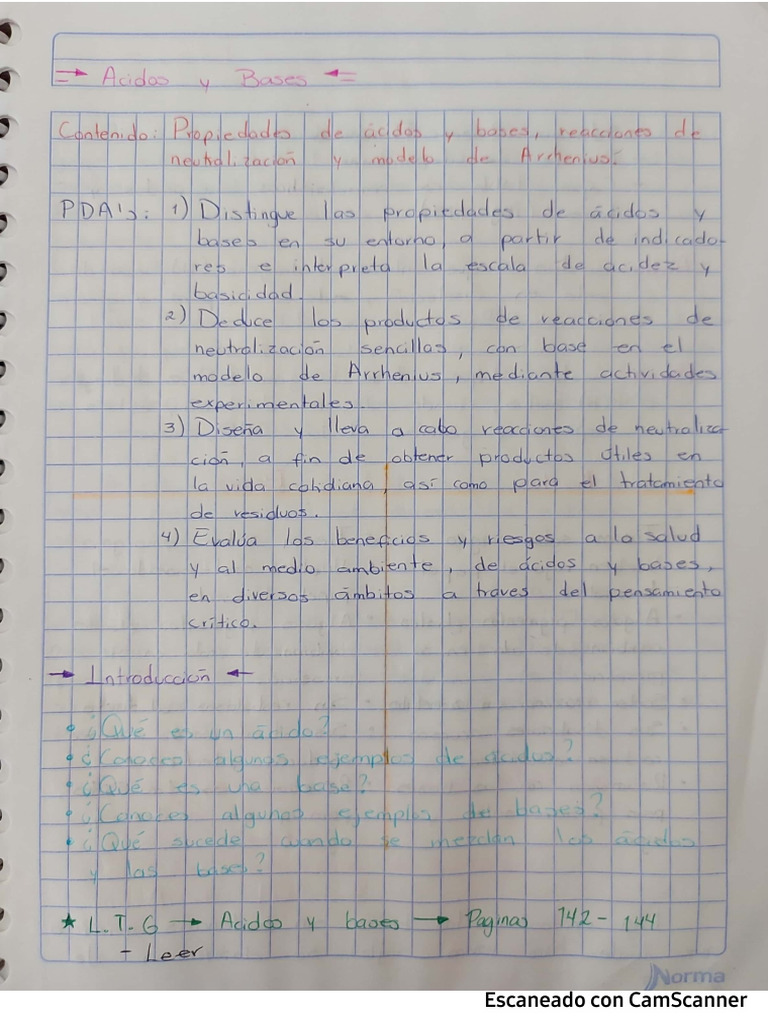 ⇒ Acidos y Bases ⇐
Contenido: Propiedades de ácidos y bases, reacciones de
neutralización y modelo de Arrhenius.
PDA's: 1) Distingue las propiedades de ácidos y
bases en su entorno, a partir de indicado-
res e interpreta la escala de acidez y
basicidad.
2) Deduce los productos de reacciones de
neutralización sencillas, con base en el
modelo de Arrhenius, mediante actividades
experimentales.
3) Diseña y lleva a cabo reacciones de neutraliza-
ción, a fin de obtener productos útiles en
la vida cotidiana, así como para el tratamiento
de residuos.
4) Evalúa los beneficios y riesgos a la salud
y al medio ambiente, de ácidos y bases,
en diversos ámbitos a traves del pensamiento
crítico.
→ Introducción ←
• ¿Qué es un ácido?
• ¿Conoces algunos ejemplos de ácidos?
• ¿Qué es una base?
• ¿Conoces algunos ejemplos de bases?
• ¿Qué sucede cuando se mezclan los ácidos
y las bases?
★ L.T.G → Acidos y bases → Paginas 142 - 144
- Leer
Norma
Escaneado con CamScanner